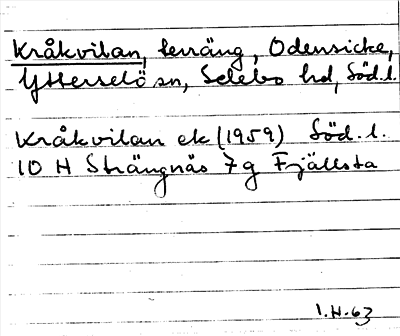 Kråkvilan, terräng, Odensicke,
Ytterselö sn, Selebo hd, Söd. l.
Kråkvilan ek (1959) Söd. l.
10 H Strängnäs 7g Fjällsta
I.H.63